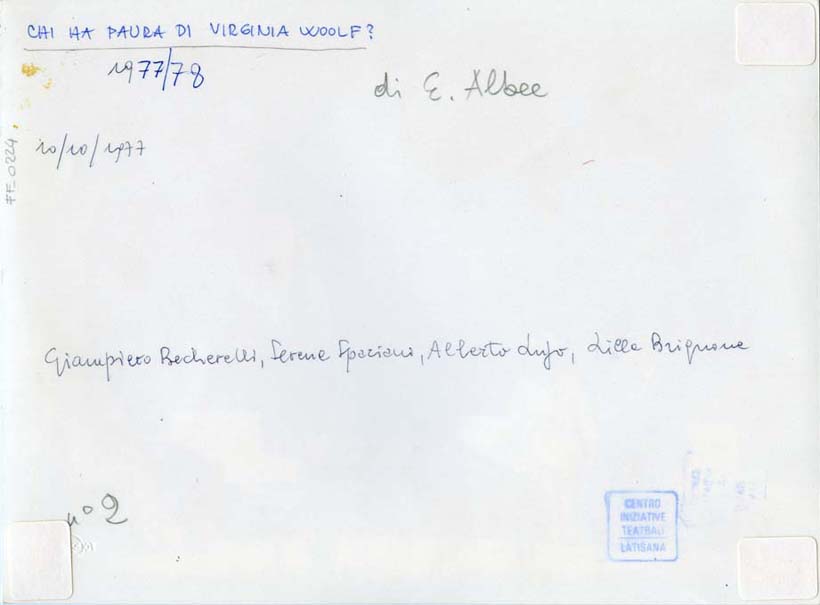 CHI HA PAURA DI VIRGINIA WOOLF?
1977/78
di E. Albee
10/10/1977
FF_0224
Giampiero Becherelli, Serena Spaziani, Alberto Lupo, Lilla Brignone
n° 2
CENTRO
INIZIATIVE
TEATRALI
LATISANA